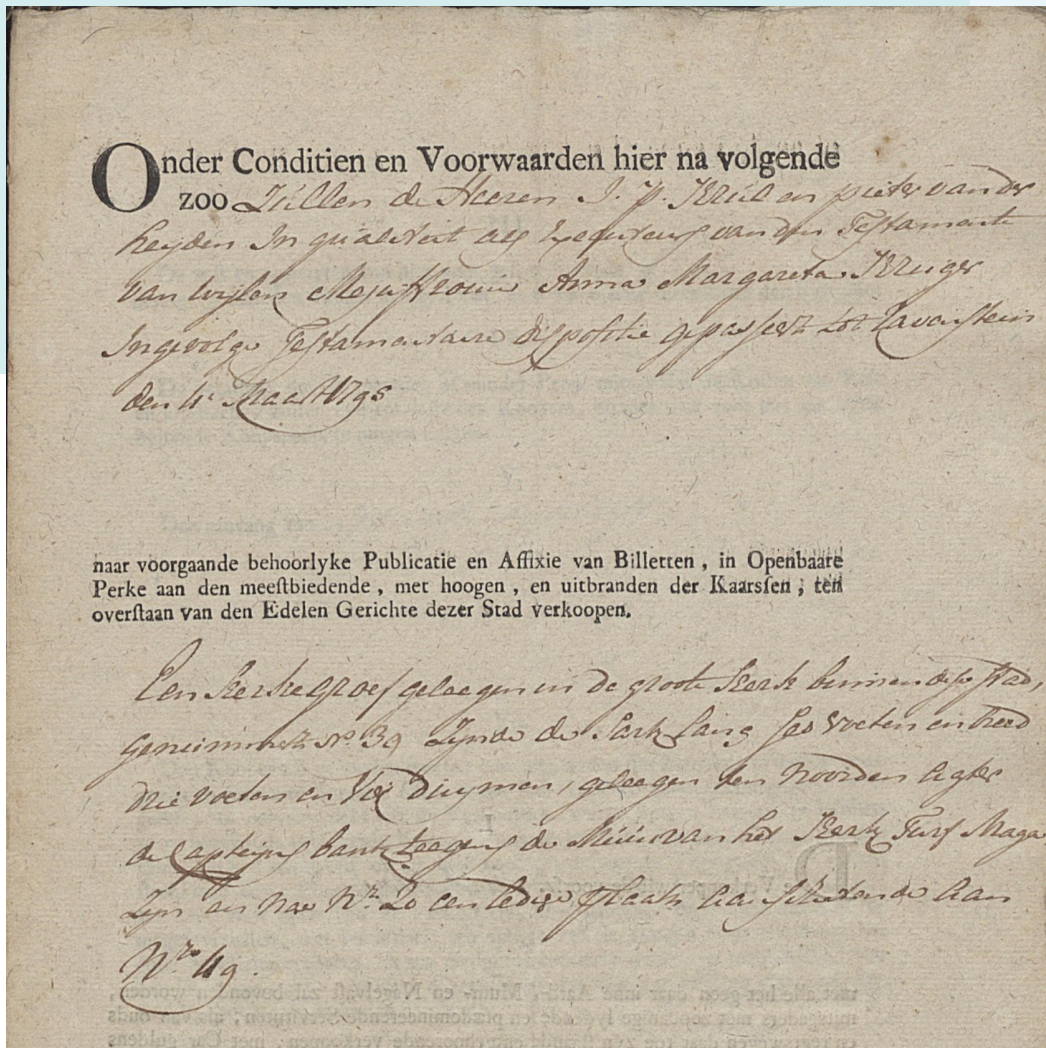 Onder Conditien en Voorwaarden hier na volgende
zoo Zullen de Heeren J. P. Krul en pieter van der
heyden In qualiteit als Executeurs van den Testamente
van wylen Mejuffrouw Anna Margareta Kruiger
Ingevolge Testamentaire dispositie gepasseert tot Ravenstein
den 4e Maart 1795
naar voorgaande behoorlyke Publicatie en Affixie van Billetten, in Openbaare
Perke aan den meestbiedende, met hoogen, en uitbranden der Kaarssen; ten
overstaan van den Edelen Gerichte dezer Stad verkoopen.
Een Kerke groef geleegen in de groote Kerk binnen dese stad,
genummert No 39 Zynde de Sark lang ses voeten en breed
drie voeten en vier duymen, geleegen ten Noorden agter
de Capteyns bank teegens de Muur van het Kerk Turf Maga
Zyn en Nae Nr. 20 een ledige plaats aan
Nro 49.